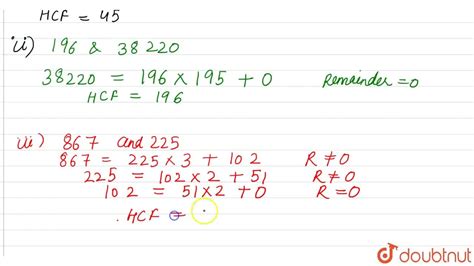 HCF = 45
ii) 196 & 38220
38220 = 196 × 195 + 0 Remainder = 0
HCF = 196
iii) 867 and 225
867 = 225 × 3 + 102 R ≠ 0
225 = 102 × 2 + 51 R ≠ 0
102 = 51 × 2 + 0 R = 0
. HCF =
doubtnut